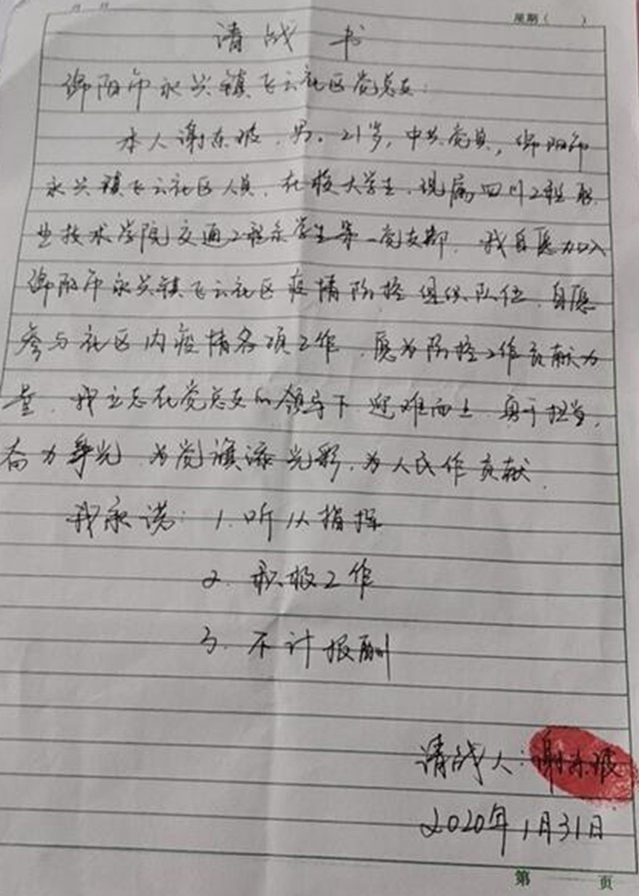 星期（ ）
请战书
绵阳市永兴镇飞云社区党总支：
本人谢东波，男，21岁，中共党员，绵阳市
永兴镇飞云社区人员，在校大学生，现属四川工程职
业技术学院交通工程系学生第一党支部，我自愿加入
绵阳市永兴镇飞云社区疫情防控组织队伍，自愿
参与社区内疫情各项工作，愿为防控工作贡献力
量，我立志在党总支的领导下迎难而上，勇于担当，
奋力争光，为党旗添光彩，为人民作贡献。
我承诺：1.听从指挥
2.积极工作
3.不计报酬
请战人：谢东波
2020年1月31日
第 页